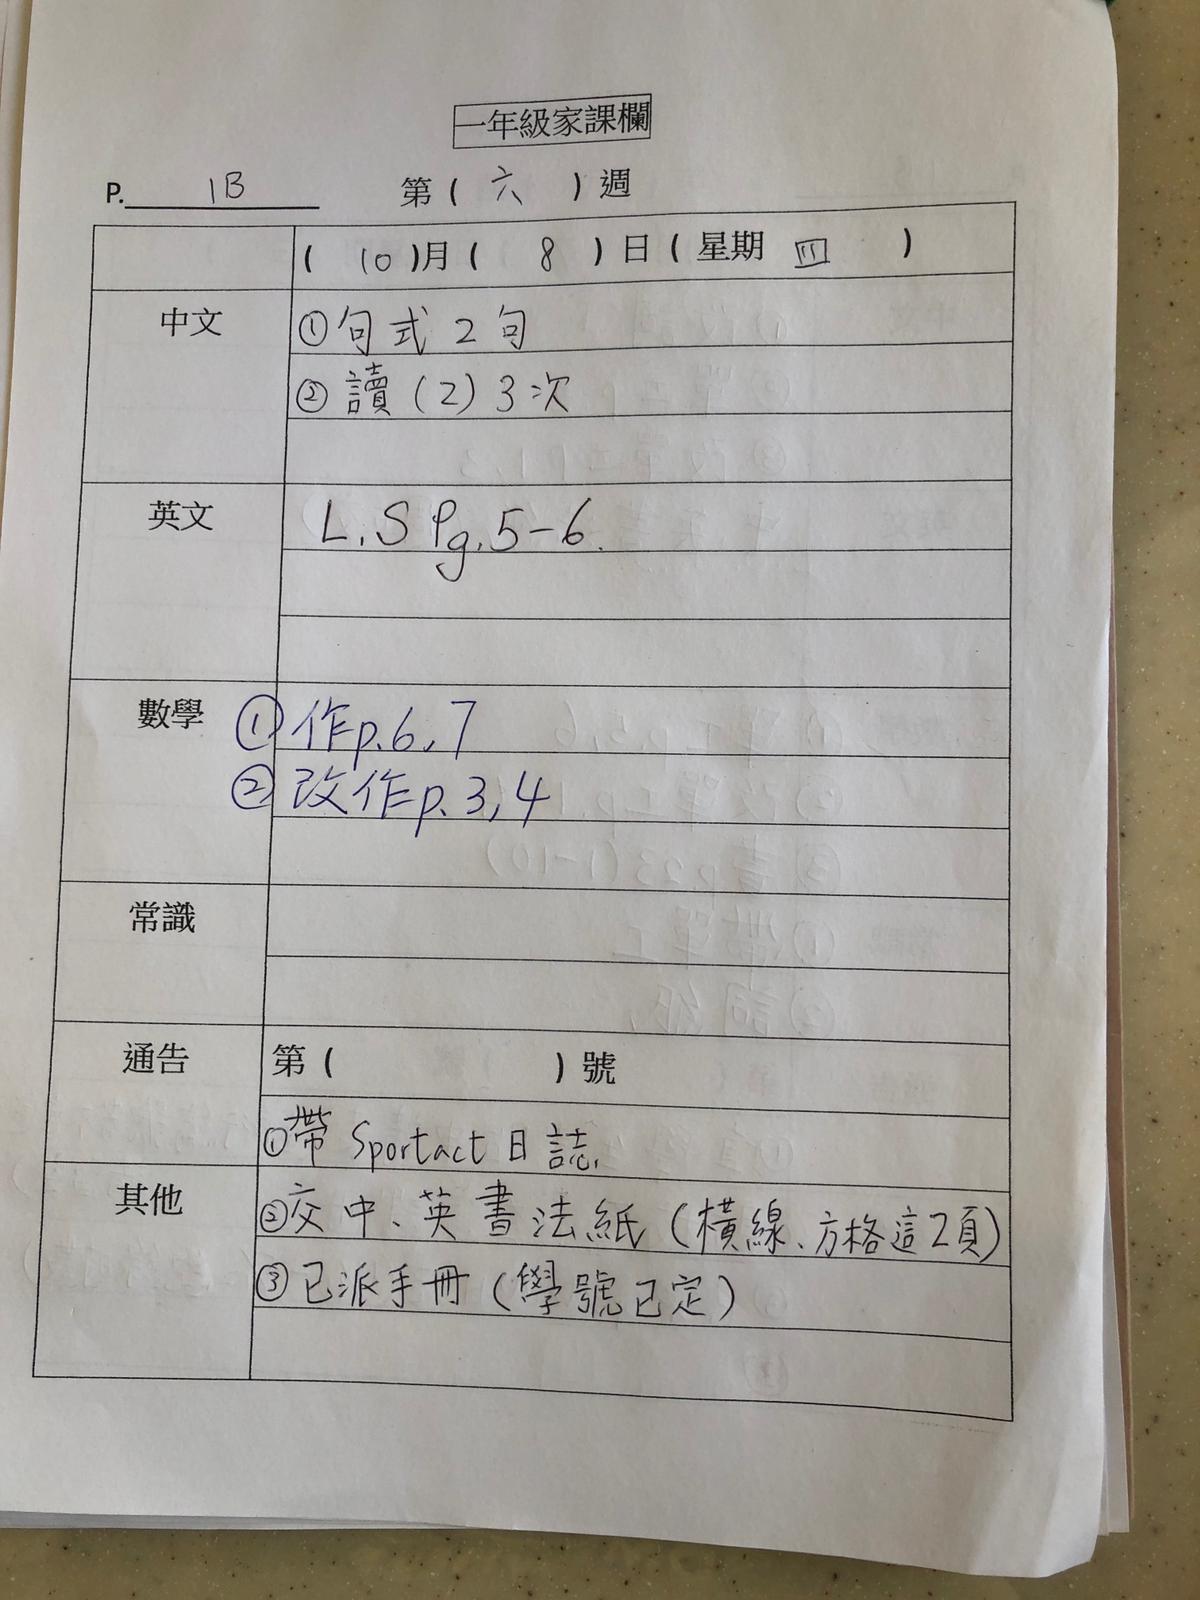 一年級家課欄
P. 1B 第( 六 )週
( 10 )月( 8 )日(星期 四 )
中文 ①句式2句
②讀(2)3次
英文 L.S Pg.5-6.
數學 ①作p.6,7
②改作p.3,4
常識
通告 第( )號
①帶 Sportact 日誌.
其他 ②交中、英書法紙(橫線、方格這2頁)
③已派手冊(學號已定)